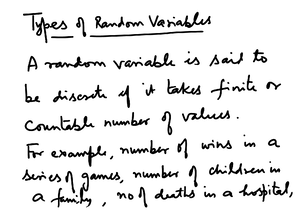 Types of Random Variables
A random variable is said to
be discrete if it takes finite or
countable number of values.
For example, number of wins in a
series of games, number of children in
a family, no of deaths in a hospital,